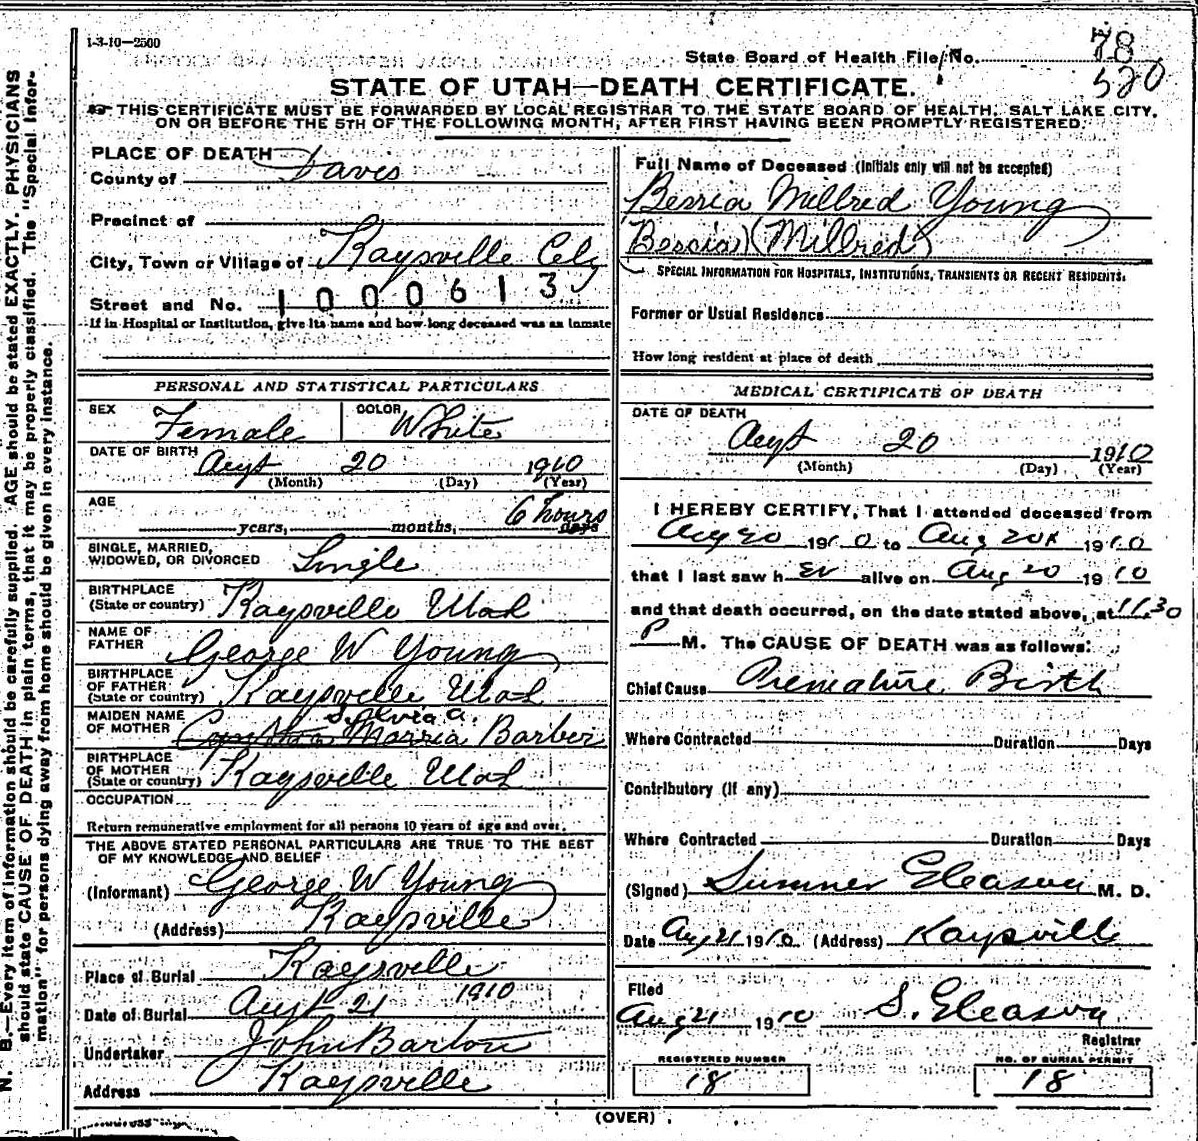 1-3-10—2500
State Board of Health File No. 78
520
STATE OF UTAH—DEATH CERTIFICATE.
THIS CERTIFICATE MUST BE FORWARDED BY LOCAL REGISTRAR TO THE STATE BOARD OF HEALTH, SALT LAKE CITY,
ON OR BEFORE THE 5TH OF THE FOLLOWING MONTH, AFTER FIRST HAVING BEEN PROMPTLY REGISTERED.
N. B.—Every item of information should be carefully supplied. AGE should be stated EXACTLY. PHYSICIANS
should state CAUSE OF DEATH in plain terms, that it may be properly classified. The "Special Infor-
mation" for persons dying away from home should be given in every instance.
PLACE OF DEATH
County of Davis
Precinct of
City, Town or Village of Kaysville City
Street and No. 1000613
If in Hospital or Institution, give its name and how long deceased was an inmate
PERSONAL AND STATISTICAL PARTICULARS
SEX Female COLOR White
DATE OF BIRTH Augt 20 1910
(Month) (Day) (Year)
AGE 6 hours
years, months, days
SINGLE, MARRIED,
WIDOWED, OR DIVORCED Single
BIRTHPLACE
(State or country) Kaysville Utah
NAME OF
FATHER George W Young
BIRTHPLACE
OF FATHER
(State or country) Kaysville Utah
Sylvia a.
MAIDEN NAME
OF MOTHER Marria Barber
BIRTHPLACE
OF MOTHER
(State or country) Kaysville Utah
OCCUPATION
Return remunerative employment for all persons 10 years of age and over.
THE ABOVE STATED PERSONAL PARTICULARS ARE TRUE TO THE BEST
OF MY KNOWLEDGE AND BELIEF
(Informant) George W Young
(Address) Kaysville
Place of Burial Kaysville
Date of Burial Augt 21 1910
Undertaker John Barton
Address Kaysville
Full Name of Deceased (Initials only will not be accepted)
Bessia Millred Young
Bescia) (Millred)
SPECIAL INFORMATION FOR HOSPITALS, INSTITUTIONS, TRANSIENTS OR RECENT RESIDENTS.
Former or Usual Residence
How long resident at place of death
MEDICAL CERTIFICATE OF DEATH
DATE OF DEATH
Augt 20 1910
(Month) (Day) (Year)
I HEREBY CERTIFY, That I attended deceased from
Aug 20 1910 to Aug 20th 1910
that I last saw h er alive on Aug 20 1910
and that death occurred, on the date stated above, at 11.30
P M. The CAUSE OF DEATH was as follows:
Chief Cause Premature Birth
Where Contracted Duration Days
Contributory (if any)
Where Contracted Duration Days
(Signed) Sumner Gleason M. D.
Date Aug 21 1910 (Address) Kaysville
Filed
Aug 21 1910 S. Gleason
Registrar
REGISTERED NUMBER
18
NO. OF BURIAL PERMIT
18
(OVER)